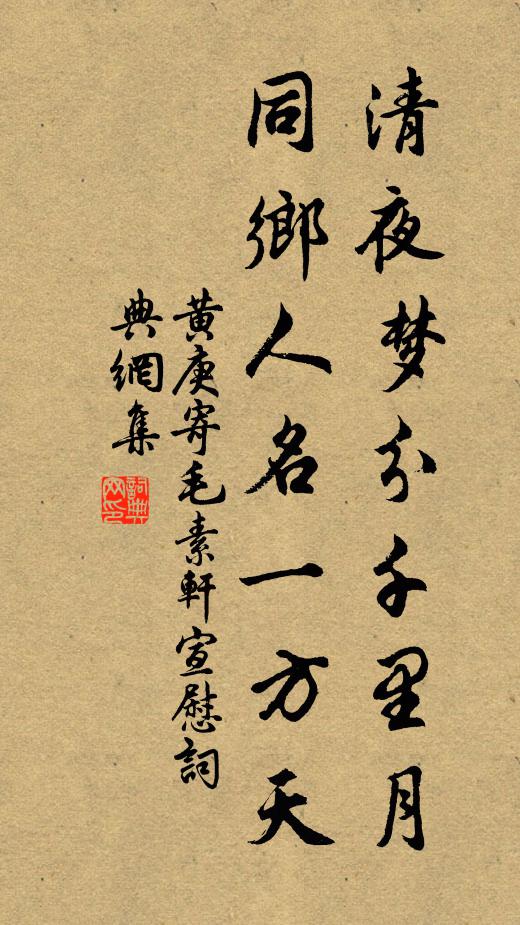 清夜梦分千里月
同鄉人名一方天
黄庚寄毛素軒宣慰詞
典網集
詞典网印